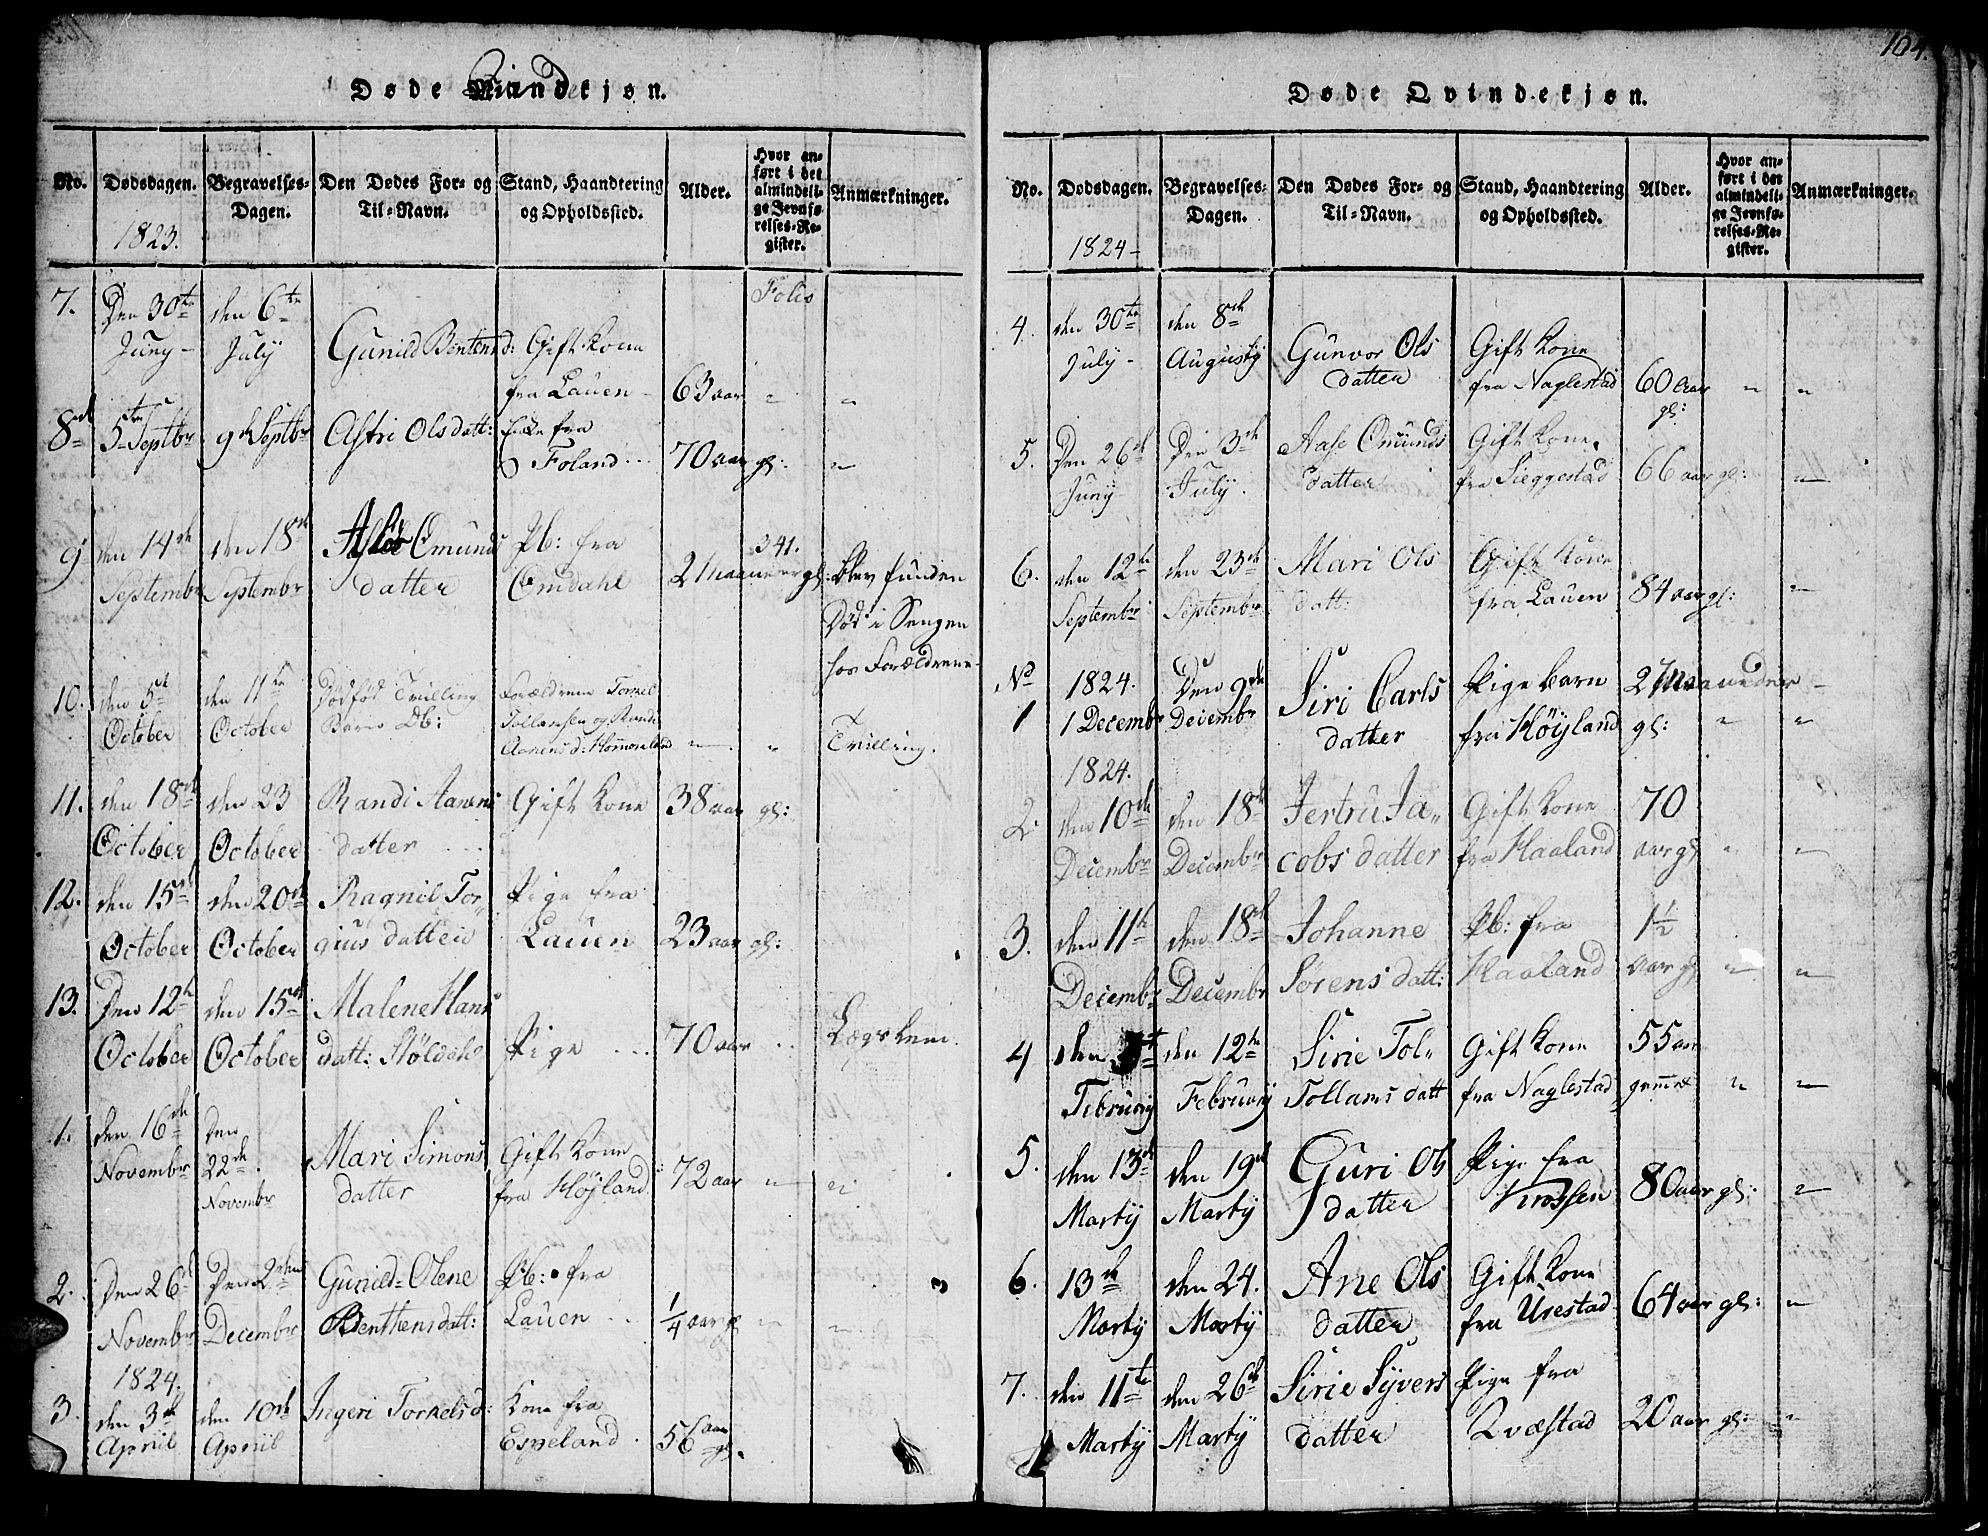 104.
Døde Qvindekjøn.
No.
Dødsdagen.
1823.
Begravelses-
Dagen.
Den Dødes For- og
Til-Navn.
Stand, Haandtering
og Opholdssted.
Alder.
Hvor an-
ført i det
almindeli-
ge Jevnfø-
relses-Re-
gister.
Anmærkninger.
Folio
7. Den 30te den 6te
Juny - July Gunild Bentens d: Gift Kone
fra Lauen - 63 aar " "
8de 5te Septbr 9de Septbr Astri Olsdatt: Enke fra
Foland 70 aar gl: "
9 den 14de den 18de Omunds Pb: fra 341.
Septembr Septembr datter Omdahl 2 Maaneder gl: Blev funden
Død i Sengen
hos Forældrene
10. den 5te den 11te Dødfød Tvilling Forældrene Torkel
October October Barn Db: Tollaksen og Randi
Aanensd: " " Tvilling.
11. den 18de den 23 Randi Aanens Gift Kone 38 aar gl:
October October datter
12. den 15de den 20de Ragnil Tor- Pige fra
October October gius datter Lauen 23 aar gl:
13. Den 12te den 15de Malene Hans
October October datt: Støldahl Pige 70 aar Lægslem.
1. den 16de Den
Novembr 22de Mari Simons Gift Kone
Novembr datter fra Høyland 72 aar " "
2. Den 26de Den 2den Gunild Olene Pb: fra
Novembr December Benthens datt: Lauen 1/4 aar gl " "
1824.
3. den 3de den 10de Ingeri Torkelsd: Kone fra
April April Espeland. 56 aar
gl.
Døde Qvindekjøn.
No.
Dødsdagen.
1824-
Begravelses-
Dagen.
Den Dødes For- og
Til-Navn.
Stand, Haandtering
og Opholdssted.
Alder.
Hvor an-
ført i det
almindeli-
ge Jevnfø-
relses-Re-
gister.
Anmærkninger.
4. den 30te den 8de Gunvor Ols Gift Kone
July - Augusty datter fra Naglestad 60 Aar " "
gl:
5. Den 26de Den 3de Aase Omunds Gift Kone
Juny July. datter fra Sieggestad 66 aar gl: "
6. den 12te den 23de Mari Ols Gift Kone
Septembr Septembr datt: fra Lauen 84 aar gl: "
No 1824. Den 9de Siri Carls Pige barn 2 Maaneder
1 1 Decembr Decembr datter fra Höyland gl: " "
1824.
2. den 10de den 18de Jertru Ja- Gift Kone 70
Decembr Decembr cobs datter fra Haaland aar gl " "
3. den 11te den 18de Johanne Pb: fra 1 1/2
Decembr Decembr Sörens datt: Haaland Aar gl " "
4 den den 12te Sirie Tol- Gift Kone 55 aar
Februarij Februarij Tollams datt fra Naglestad gammel " "
5. den 13de den 19de Guri Ols Pige fra
Martij Martij datter 80 aar gl: "
6. 13de den 24. Ane Ols Gift Kone
Martij Martij datter fra Urestad 64 aar gl: "
7. den 11te den 26de Sirie Syvers Pige fra
Martij Martij datter Qvæstad 20 aar gl: "